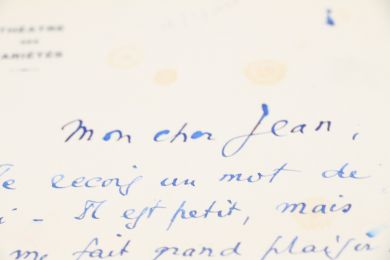 THÉATRE
DES
VARIÉTÉS
Mon cher Jean,
Je reçois un mot de
toi - Il est petit, mais
me fait grand plaisir